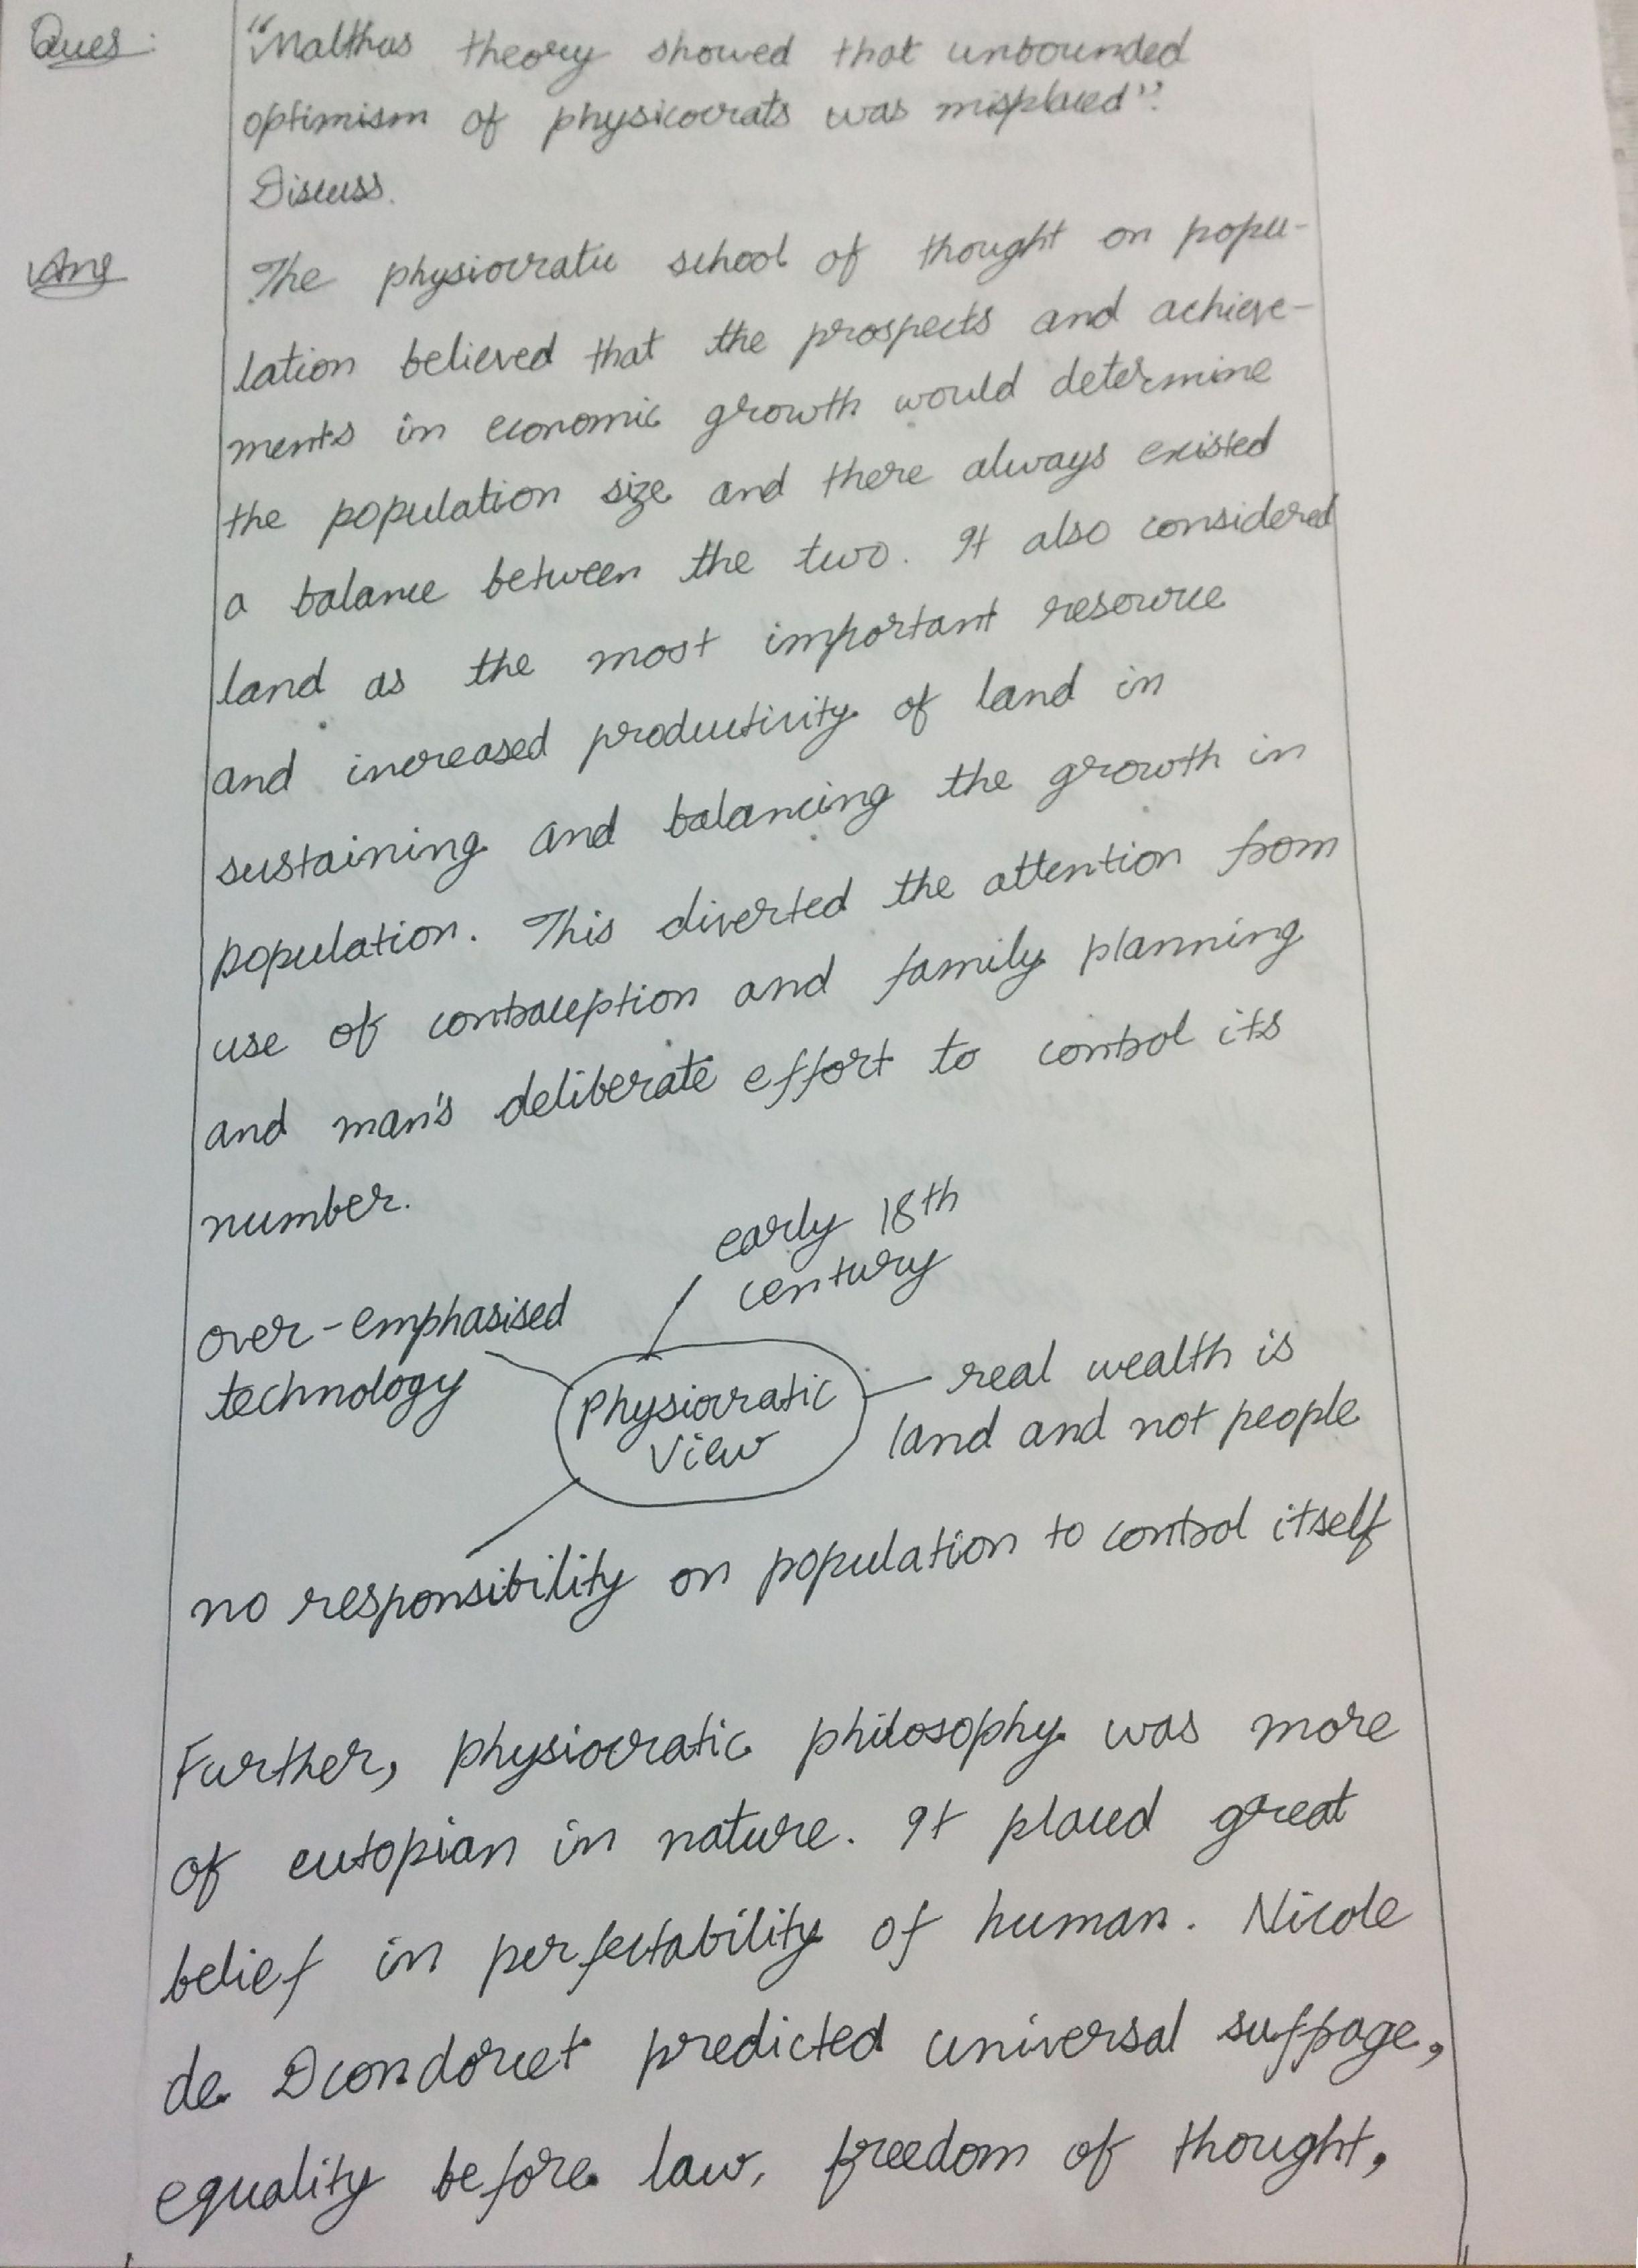 Ques:
"Malthus theory showed that unbounded
optimism of physicocrats was misplaced".
Discuss.
Ans
The physiocratic school of thought on popu-
lation believed that the prospects and achieve-
ments in economic growth would determine
the population size and there always existed
a balance between the two. It also considered
land as the most important resource
and increased productivity of land in
sustaining and balancing the growth in
population. This diverted the attention from
use of contraception and family planning
and man's deliberate effort to control its
number.
early 18th
century
over-emphasised
technology
Physiocratic
View
real wealth is
land and not people
no responsibility on population to control itself
Further, physiocratic philosophy was more
of eutopian in nature. It placed great
belief in perfectability of human. Nicole
de Dcondorcet predicted universal suffrage,
equality before law, freedom of thought,